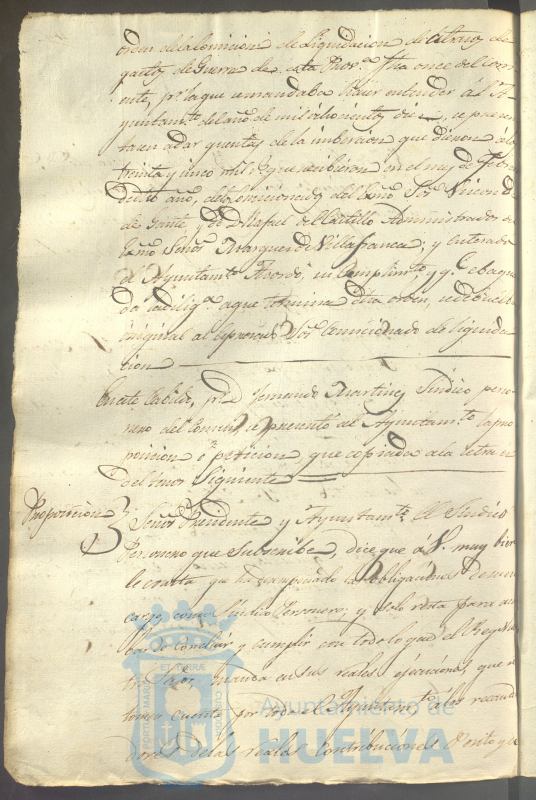 orden de la Comision de Liquidacion de Atrasos de
gastos de Guerra de esta Prov.ª fha once del corri
ente, p.r la que se mandaba hacer entender al A-
yuntam.to del año de mil ochocientos die se presen
tasen a dar quentas de la inbercion que dieron á los
treinta y cinco mil r.s que recibieron en el mes de Feb.o
de dicho año, del Comisionado del Exmo Sor
de Gante, y de D. Rafael del Castillo Administrador del
Exmo Señor Marques de Villafranca; y enterado
el Ayuntam.to Acordó, su Cumplim.to, y q.e ebaqua
da la dilig.a a que termina dicha orden, se debuelba
original al expresado Sor Comicionado de liquida
cion
En este Cabildo, p.r D. Fernando Martinez Sindico perso
nero del Comun, se presentó al Ayuntam.to la pro
posicion ó peticion que copiada a la letra es
del tenor siguiente
Proposicion
Señor Presidente y Ayuntam.to El Sindico
Personero que Subscribe, dice que á V. muy bien
le consta que ha las obligaciones de su en
cargo como Sindico Personero; y solo resta para aca
bar de concluir y cumplir con todo lo que el Rey Nu
tro Sor manda en sus reales que se
tomen cuentas por todo el Ayuntam.to a los recauda
dores de las reales Contribuciones, Posito y
ET TERRAE
PORTUS MARIS
CUSTODIA
Ayuntamiento de
HUELVA